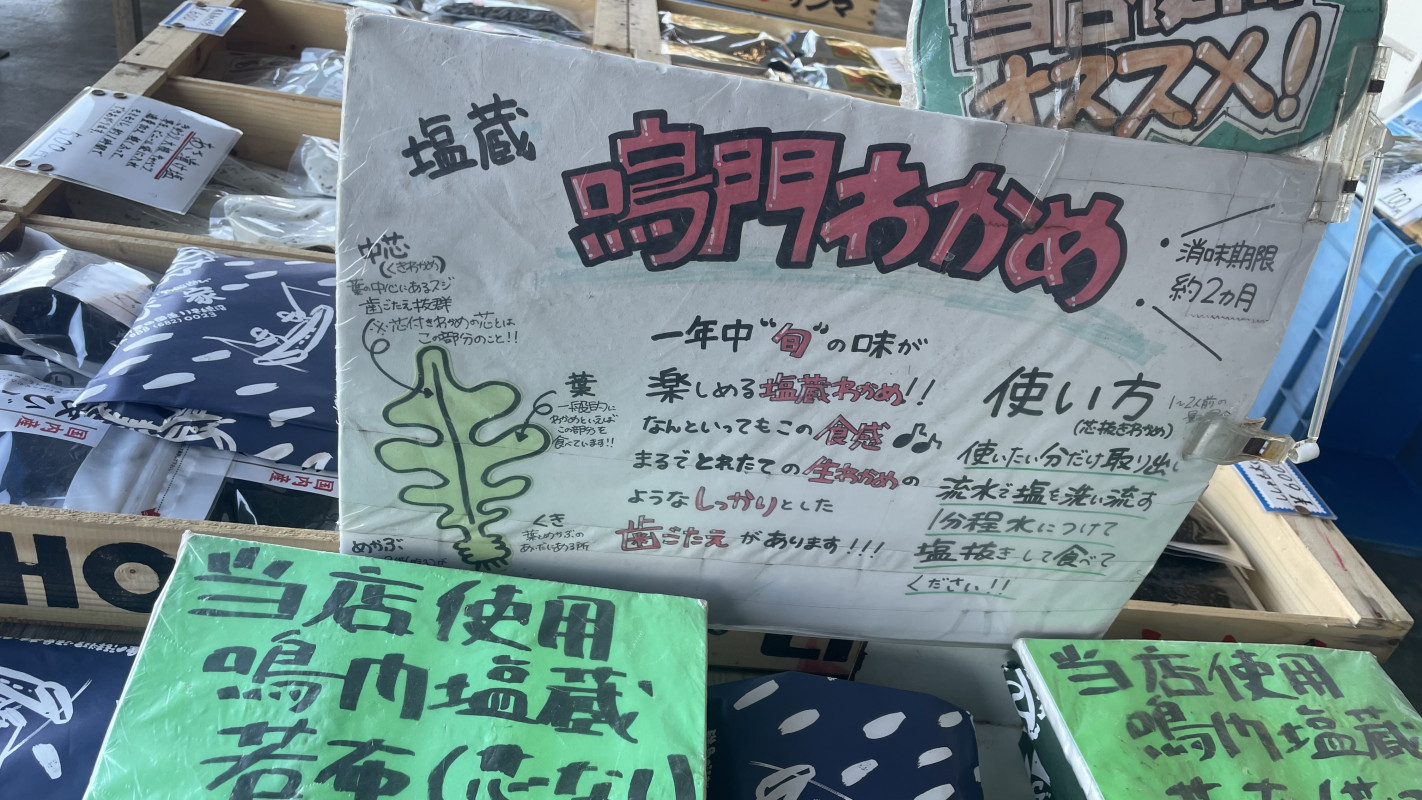 オススメ!
塩蔵
鳴門わかめ
消味期限
約2ヵ月
中芯
(くきわかめ)
葉の中心にあるスジ
歯ごたえ抜群
※芯付きわかめの芯とは
この部分のこと!!
葉
一般的に
わかめといえば
この部分を
食べています!!
くき
葉とめかぶの
あいだにある所
めかぶ
一年中"旬"の味が
楽しめる塩蔵わかめ!!
なんといってもこの食感♪
まるでとれたての生わかめの
ようなしっかりとした
歯ごたえがあります!!!
使い方
(芯抜きわかめ)
使いたい分だけ取り出し
流水で塩を洗い流す
1分程水につけて
塩抜きして食べて
ください!!
当店使用
鳴門塩蔵
若布(芯なし)
当店使用
鳴門塩蔵
国内産
国内産
(682)0023
HO